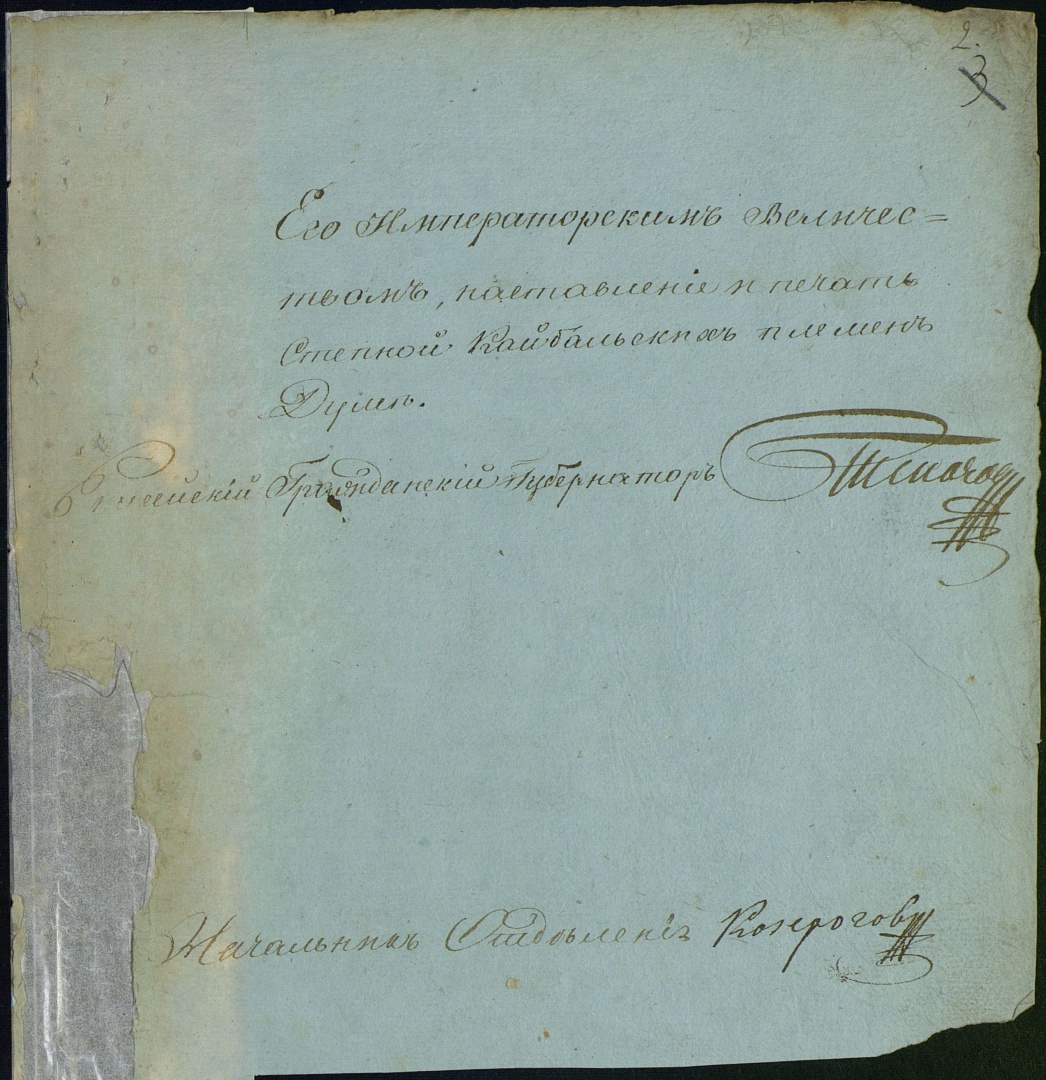 2.
3
Его Императорскимъ Величес=
твомъ, наставленіе и печать
Степной Кайбальскихъ племенъ
Думѣ.
Енисейскій Гражданскій Губернаторъ
Начальникъ Отдѣленія Козероговъ